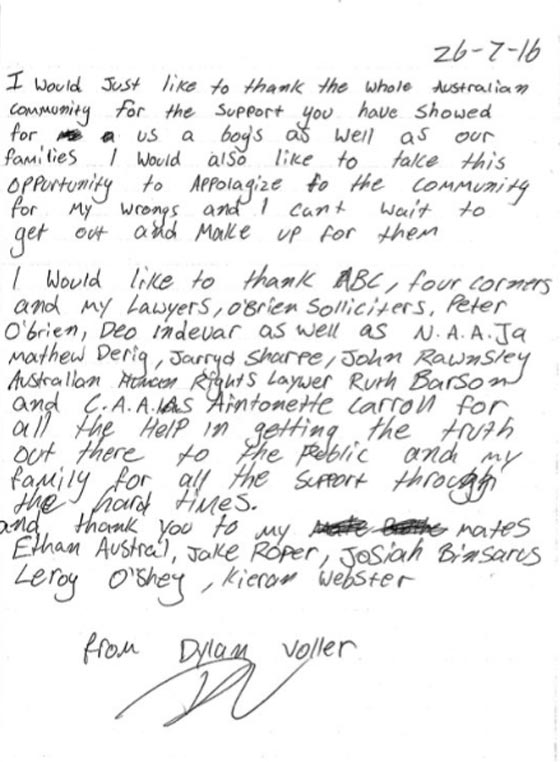 26-7-16
I would just like to thank the whole Australian
community for the support you have showed
for us a boys as well as our
families I would also like to take this
opportunity to Appolagize to the community
for my wrongs and I cant wait to
get out and make up for them
I would like to thank ABC, four corners
and my Lawyers, O'Brien Solliciters, Peter
O'brien, Deo indevar as well as N.A.A.Ja
Mathew Derig, Jarryd Sharpe, John Rawnsley
Australian Rights Laywer Ruth Barson
and C.A.A.LAS Aintonette Carroll for
all the Help in getting the truth
out there to the Peblic and my
family for all the support through
the hard times.
and thank you to my mates
Ethan Austral, Jake Roper, Josiah Binsarus
Leroy O'Shey, Kieran Webster
from Dylan Voller